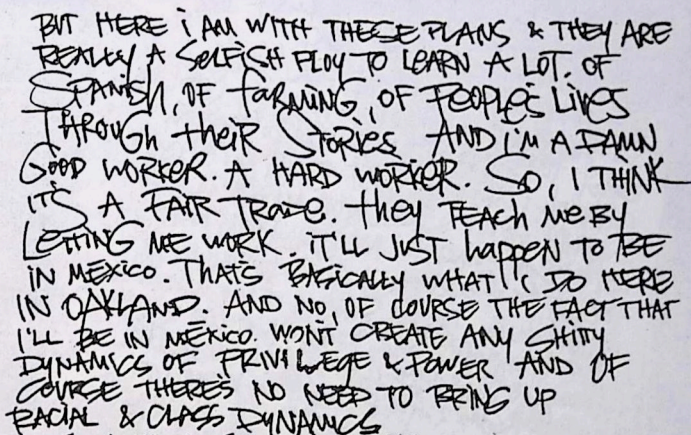 BUT HERE i AM WITH THESE PLANS & THEY ARE
REALLY A SELFISH PLOY TO LEARN A LOT. OF
SPANISH, OF FARMING, OF PEOPLE'S LIVES
THROUGH THEIR STORIES AND I'M A DAMN
GOOD WORKER. A HARD WORKER. SO, I THINK
IT'S A FAIR TRADE. THEY TEACH ME BY
LETTING ME WORK. IT'LL JUST HAPPEN TO BE
IN MÉXICO. THAT'S BASICALLY WHAT I DO HERE
IN OAKLAND. AND NO, OF COURSE THE FACT THAT
I'LL BE IN MÉXICO. WON'T CREATE ANY SHITTY
DYNAMICS OF PRIVILEGE & POWER AND OF
COURSE THERE'S NO NEED TO BRING UP
RACIAL & CLASS DYNAMICS